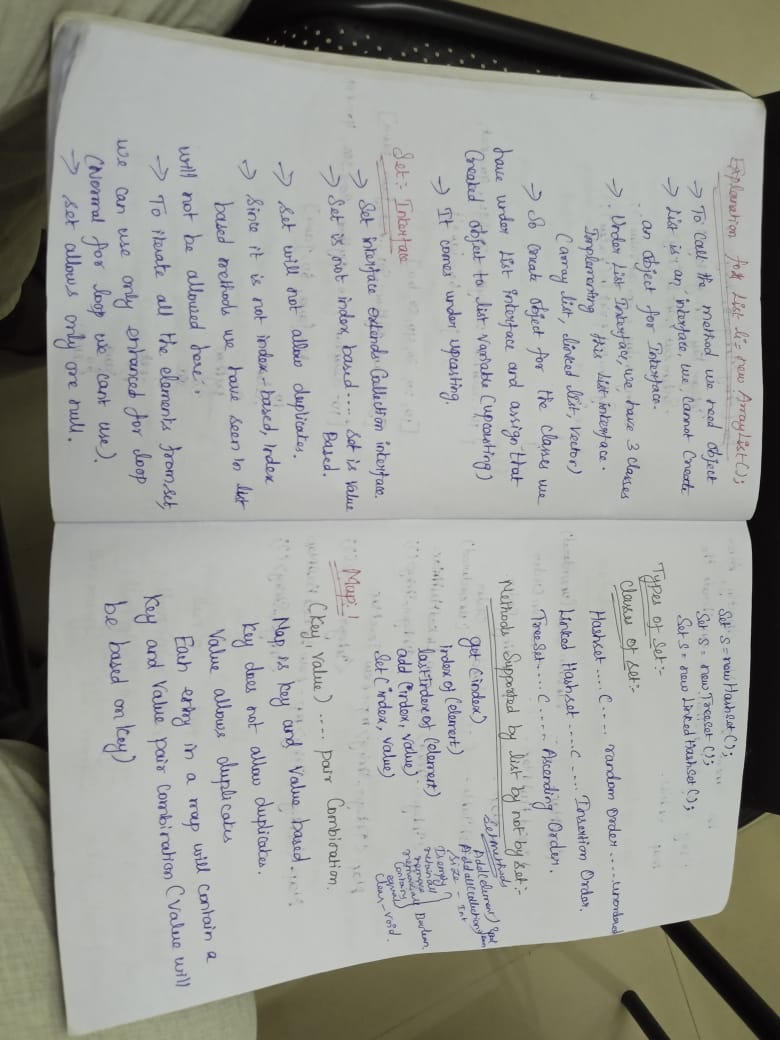 Explanation for List li = new ArrayList();
→ To call the method we need object
→ List is an interface, we cannot create
an object for Interface.
→ Under List Interface, we have 3 classes
Implementing this List interface.
(array list, linked list, vector)
→ So create object for the classes we
have under List interface and assign that
created object to list variable (upcasting)
→ It comes under upcasting.
Set:- Interface
→ Set interface extends Collection interface.
→ Set is not index based .... Set is value
Based.
→ Set will not allow duplicates.
→ Since it is not index-based, Index
based methods we have seen in list
will not be allowed here.
→ To iterate all the elements from set,
we can use only enhanced for loop
(Normal for loop we cant use).
→ Set allows only one null.
Set s = new HashSet();
Set s = new TreeSet();
Set s = new Linked HashSet();
Types of Set:-
Classes of Set:-
Hashset .... C .... random Order ..... unordered
Linked Hashset ....C .... Insertion Order.
TreeSet .... C .... Ascending Order.
Methods Supported by list by not by set:-
get (index)
index of (element)
last index of (element)
add (index, value)
Set (index, value)
Set methods
Add(element)
Add all(collection)
Size - Int
Isempty
retainall
remove
removeall
Contains
equal
Boolean
Clear - void.
Map:!
(Key, Value) .... pair Combination.
Map is key and value based...
Key does not allow duplicates.
Value allows duplicates
Each entry in a map will contain a
Key and Value pair combination (Value will
be based on key)